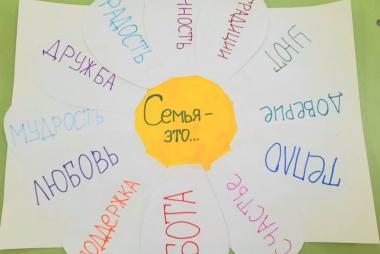 Семья -
это...
РАДОСТЬ
ТРАДИЦИИ
УЮТ
ДОВЕРИЕ
ТЕПЛО
СЧАСТЬЕ
БОТА
ПОДДЕРЖКА
ЛЮБОВЬ
МУДРОСТЬ
ДРУЖБА